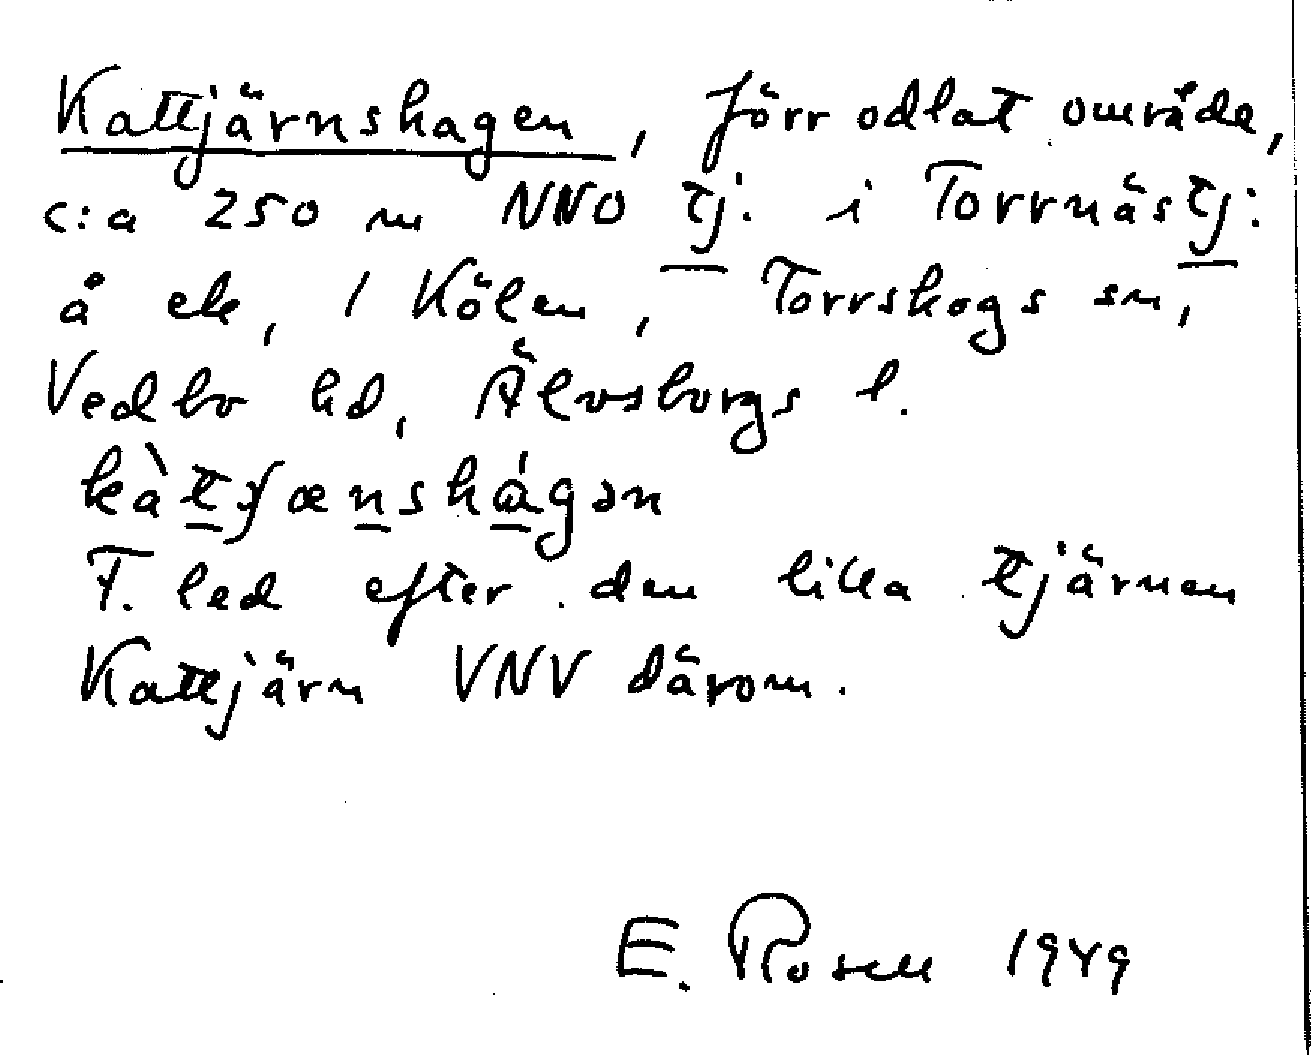 Kattjärnshagen, förr odlat område,
c:a 250 m NNO tj. i Torrnästj:
å ek, 1 Kölen, Torrskogs sn,
Vedbo hd, Älvsborgs l.
F. led efter den lilla tjärnen
Kattjärn VNV därom.
E. Rosell 1949